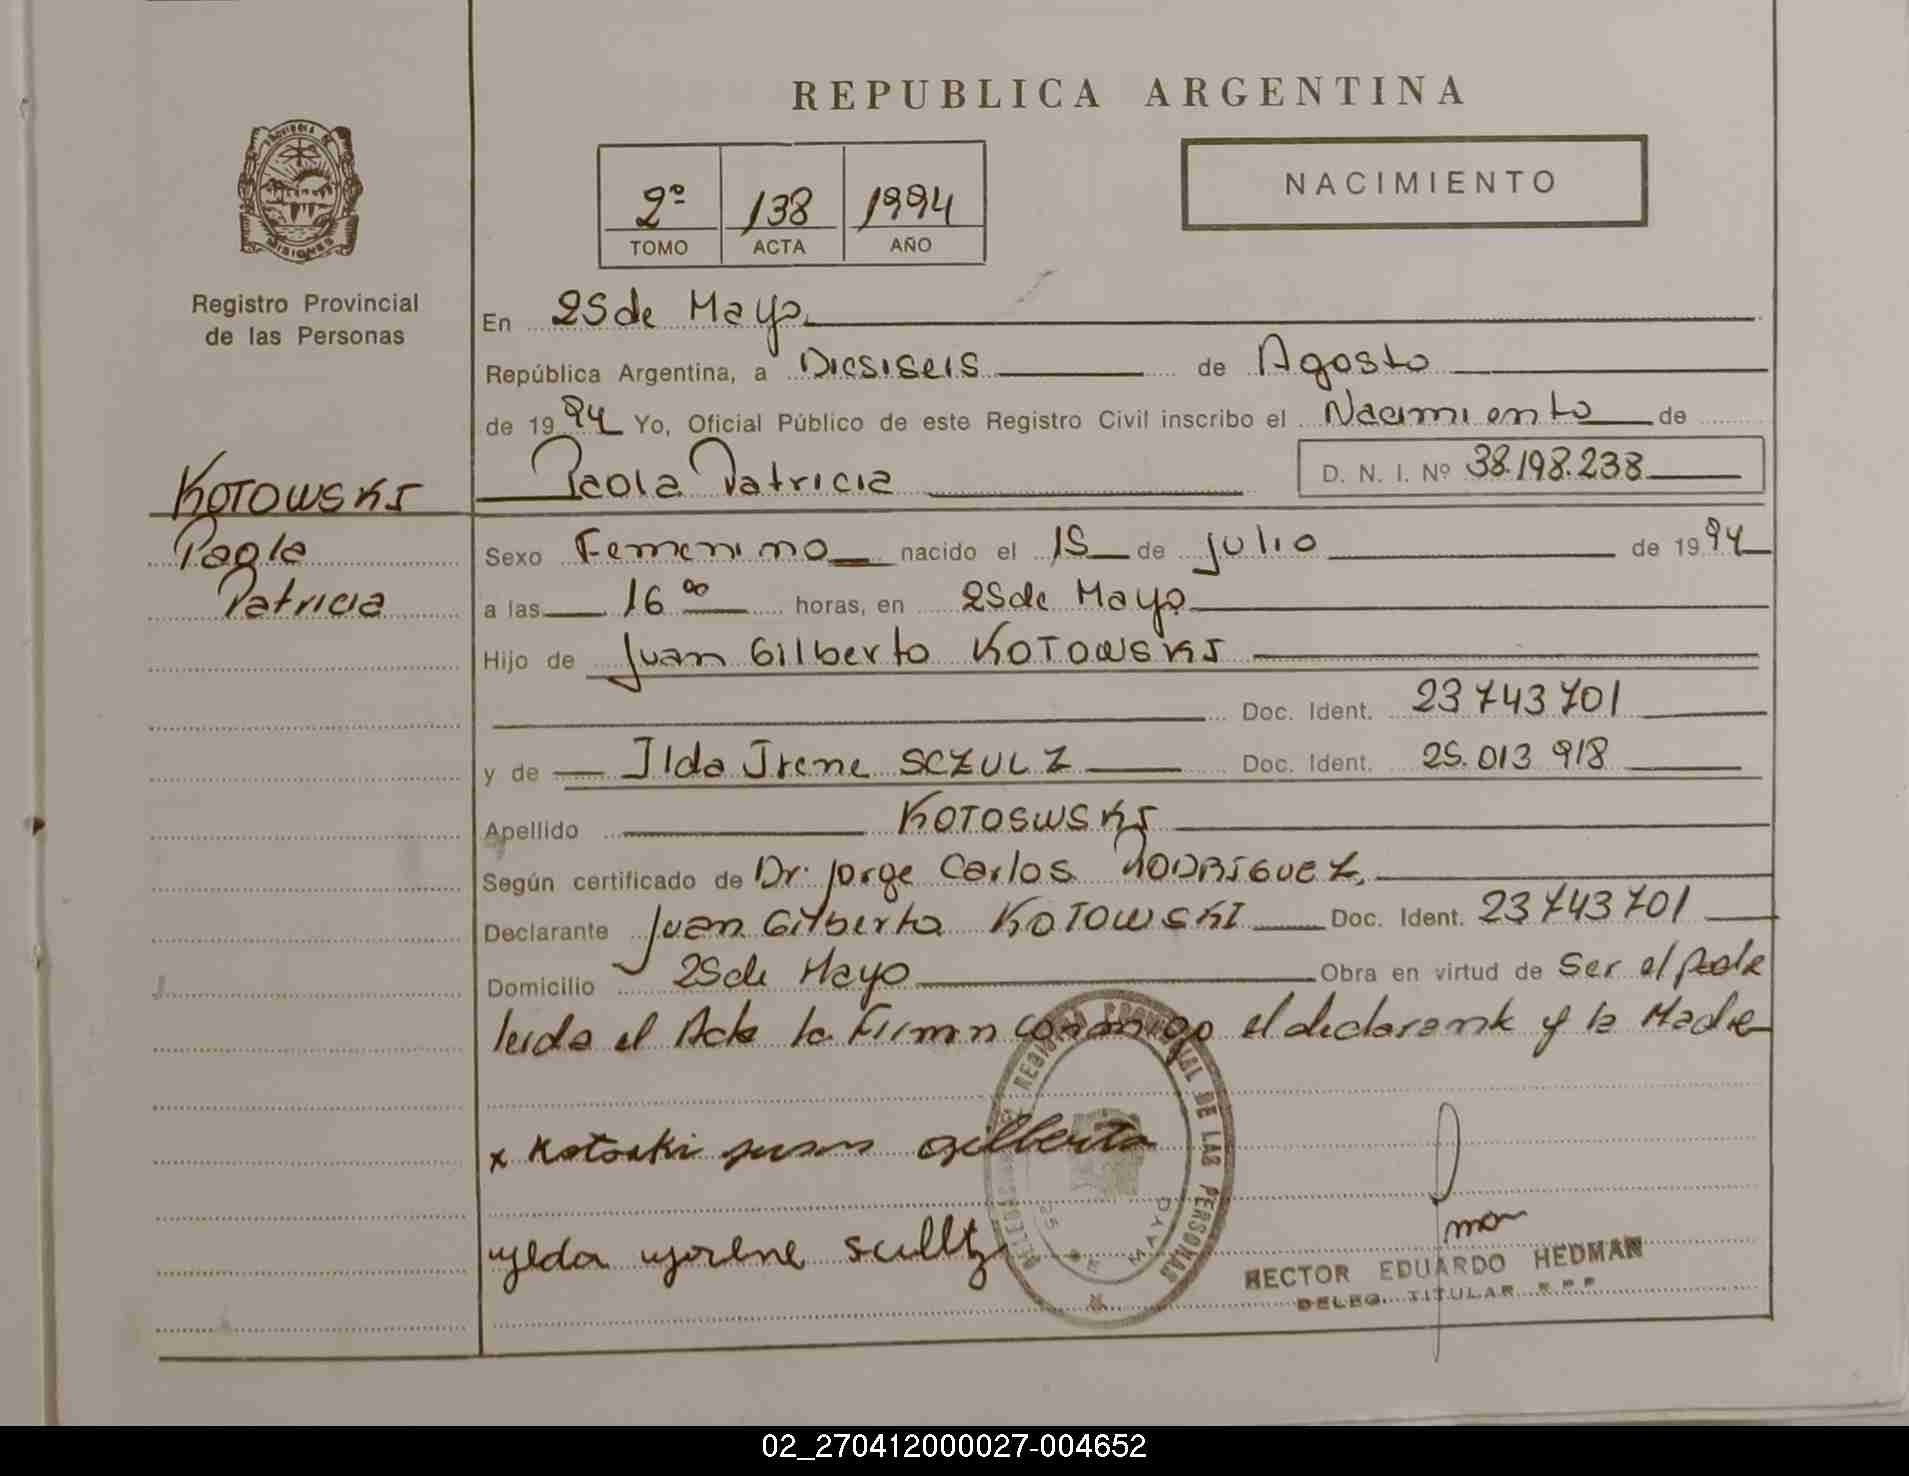 REPUBLICA ARGENTINA
PROVINCIA DE
MISIONES
Registro Provincial
de las Personas
2º 138 1994
TOMO ACTA AÑO
NACIMIENTO
En 25 de Mayo
República Argentina, a Diesiseis de Agosto
de 1994 Yo, Oficial Público de este Registro Civil inscribo el Nacimiento de
Paola Patricia D. N. I. Nº 38.198.238
KOTOWSKI
Paola
Patricia
Sexo Femenino nacido el 15 de julio de 1994
a las 16 00 horas, en 25 de Mayo
Hijo de Juan Gilberto KOTOWSKI
Doc. Ident. 23 743 701
y de Ilda Irene SCZULZ Doc. Ident. 25.013 918
Apellido KOTOSWSKI
Según certificado de Dr. Jorge Carlos RODRIGUEZ,
Declarante Juan Gilberto KOTOWSKI Doc. Ident. 23 743 701
Domicilio 25 de Mayo Obra en virtud de Ser el padre
leida el Acta la Firman conmigo el declarante y la Madre
x Kotoski juan gilberto
yrene scultz
REGISTRO PROVINCIAL DE LAS PERSONAS
25 DE MAYO
HECTOR EDUARDO HEDMAN
DELEG. TITULAR R.P.P.
02_270412000027-004652